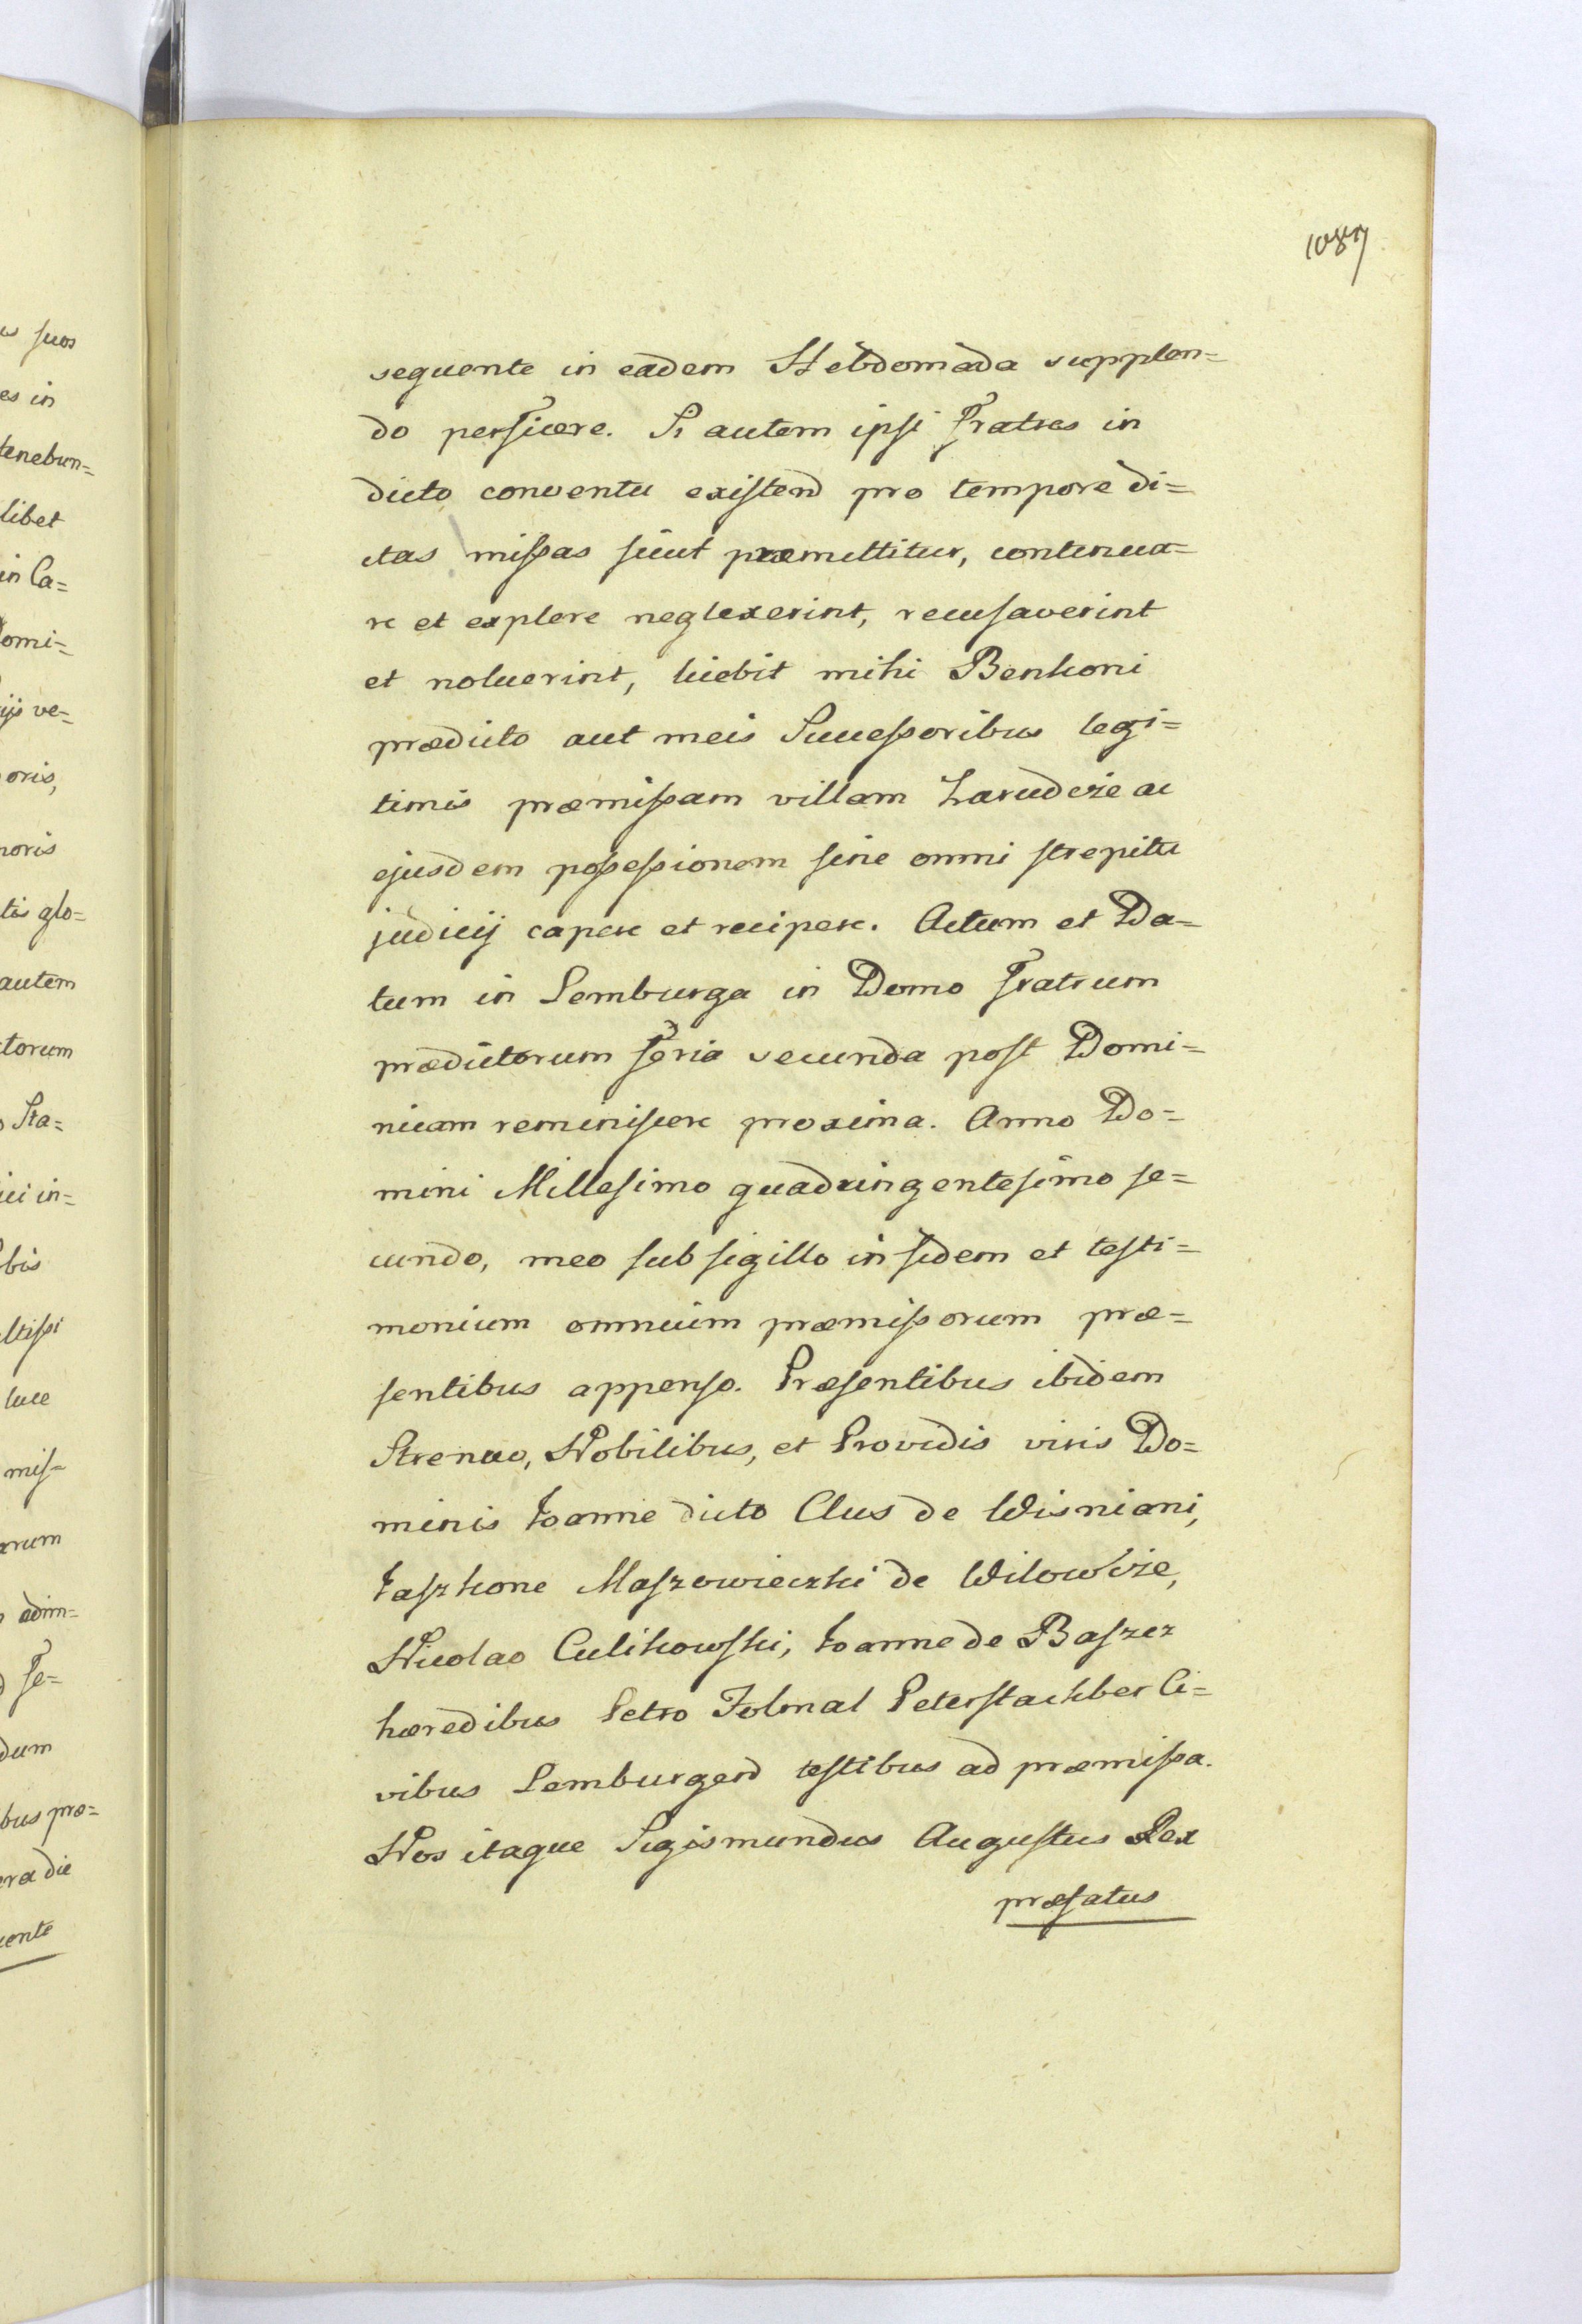 1087
sequente in eadem Hebdomada supplen=
do perficere. Si autem ipsi Fratres in
dicto conventu existend pro tempore di=
ctas missas sicut præmittitur, continua=
re et explere neglexerint, recusaverint
et noluerint, licebit mihi Benkoni
prædicto aut meis Successoribus legi=
timis præmissam villam Zarudcze ac
ejusdem possessionem sine omni strepitu
judicij capere et recipere. Actum et Da=
tum in Lemburga in Domo Fratrum
prædictorum feria secunda post Domi=
nicam reminiscere proxima. Anno Do=
mini Millesimo quadringentesimo se=
cundo, meo sub sigillo in fidem et testi=
monium omnium præmissorum præ=
sentibus appenso. Præsentibus ibidem
Strenuo, Nobilibus, et Providis viris Do=
minis Joanne dicto Clus de Wisniani,
Jaszkone Maszowieczki de Wilowcze,
Nicolao Culikowski, Joanne de Baszez
hæredibus Petro Folmal Peterstachber Ci=
vibus Lemburgend testibus ad præmissa.
Nos itaque Sigismundus Augustus Rex
præfatus
us suos
es in
tenebun=
libet
in Ca=
omi=
ijs ve=
oris,
noris
tis glo=
autem
torum
Sta=
ici in=
bis
ltissi
luce
mis=
arum
adim=
fe=
dum
bus præ=
era die
uente